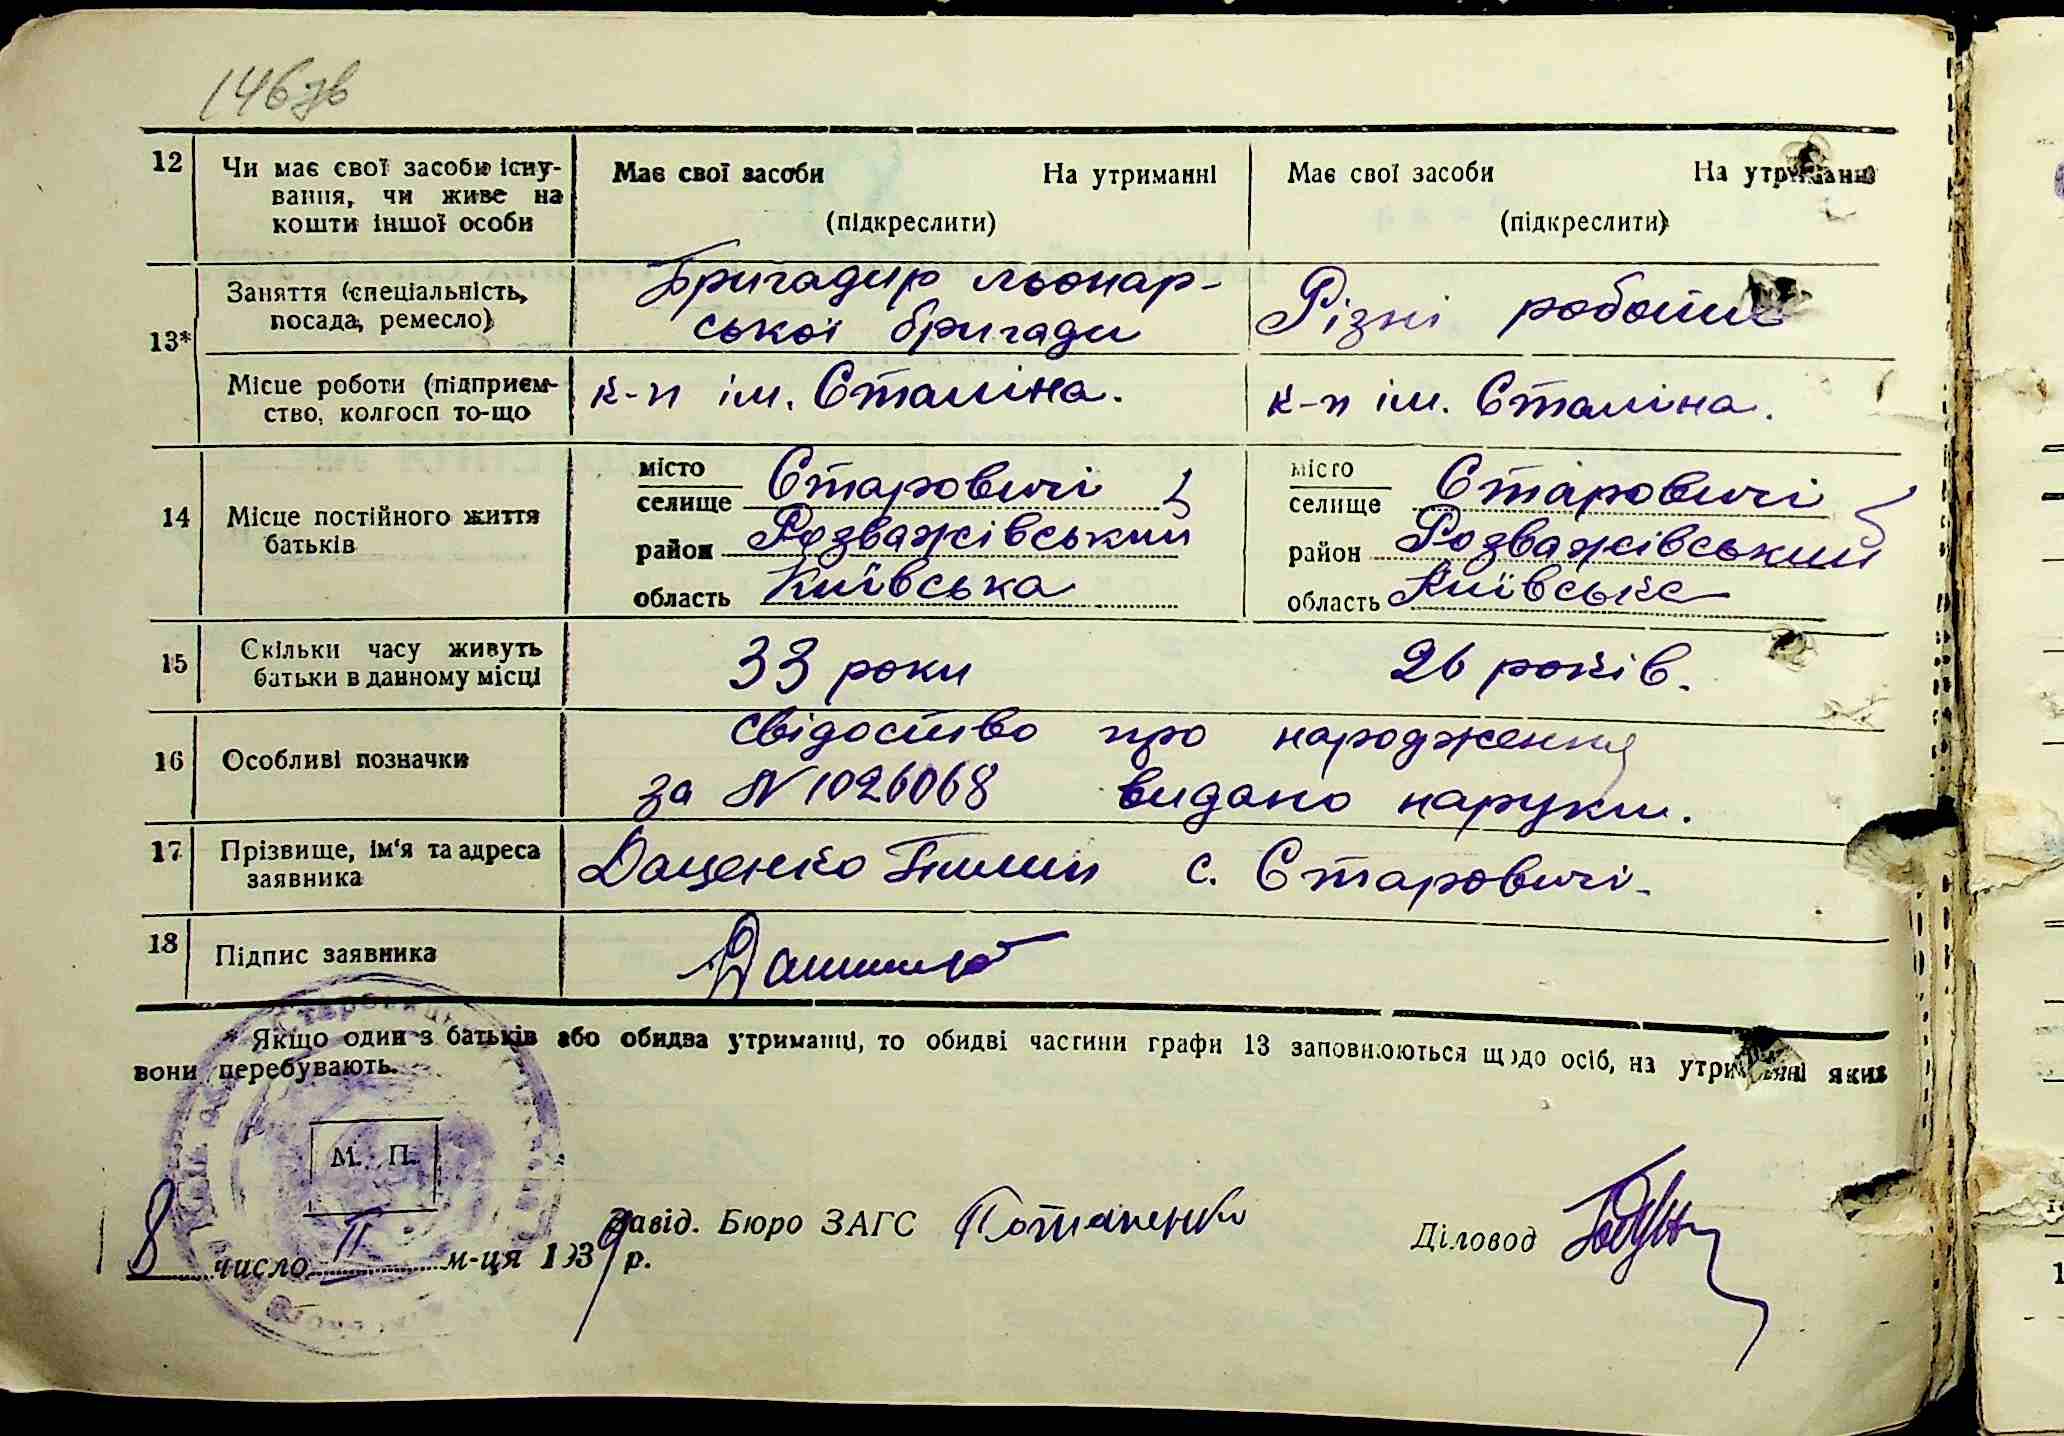 146 зв
12 Чи має свої засоби існу-
вання, чи живе на
кошти іншої особи
Має свої засоби На утриманні
(підкреслити)
Має свої засоби На утриманні
(підкреслити)
13*
Заняття (спеціальність,
посада, ремесло)
Бригадир льонар-
ської бригади
Різні роботи
Місце роботи (підприєм-
ство, колгосп то-що
к-п ім. Сталіна.
к-п ім. Сталіна.
14 Місце постійного життя
батьків
місто
селище Старовичі
район Розважівський
область Київська
місто
селище Старовичі
район Розважівський
область Київська
15 Скільки часу живуть
батьки в данному місці
33 роки
26 років.
16 Особливі позначки
свідоство про народження
за № 1026068 видано на руки.
17 Прізвище, ім'я та адреса
заявника
Даценко с. Старовичі.
18 Підпис заявника
* Якщо один з батьків або обидва утриманці, то обидві частини графи 13 заповнюються щодо осіб, на утриманні яких
вони перебувають.
М. П.
Завід. Бюро ЗАГС Потапенко
Діловод
8 число II м-ця 1939 р.